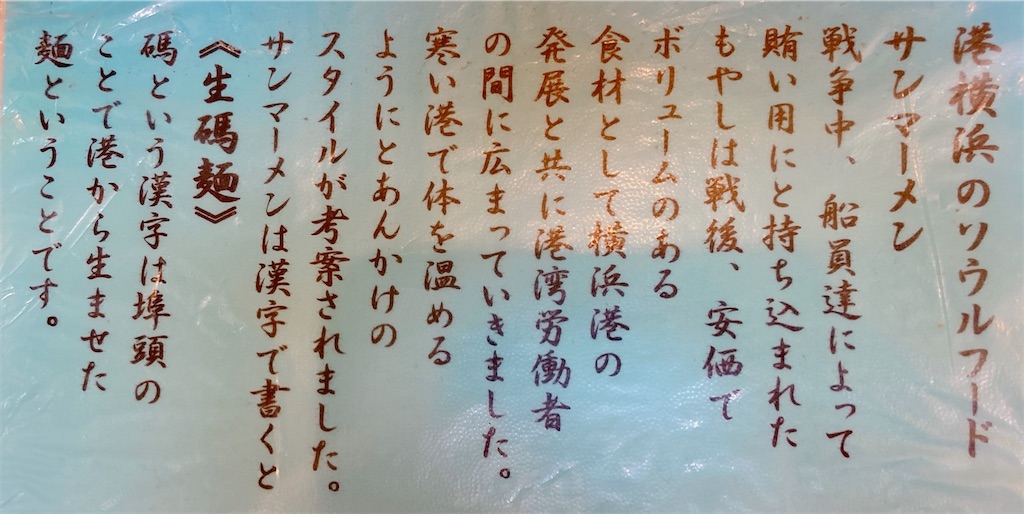 港横浜のソウルフード
サンマーメン
戦争中、船員達によって
賄い用にと持ち込まれた
もやしは戦後、安価で
ボリュームのある
食材として横浜港の
発展と共に港湾労働者
の間に広まっていきました。
寒い港で体を温める
ようにとあんかけの
スタイルが考案されました。
サンマーメンは漢字で書くと
《生碼麺》
碼という漢字は埠頭の
ことで港から生ませた
麺ということです。